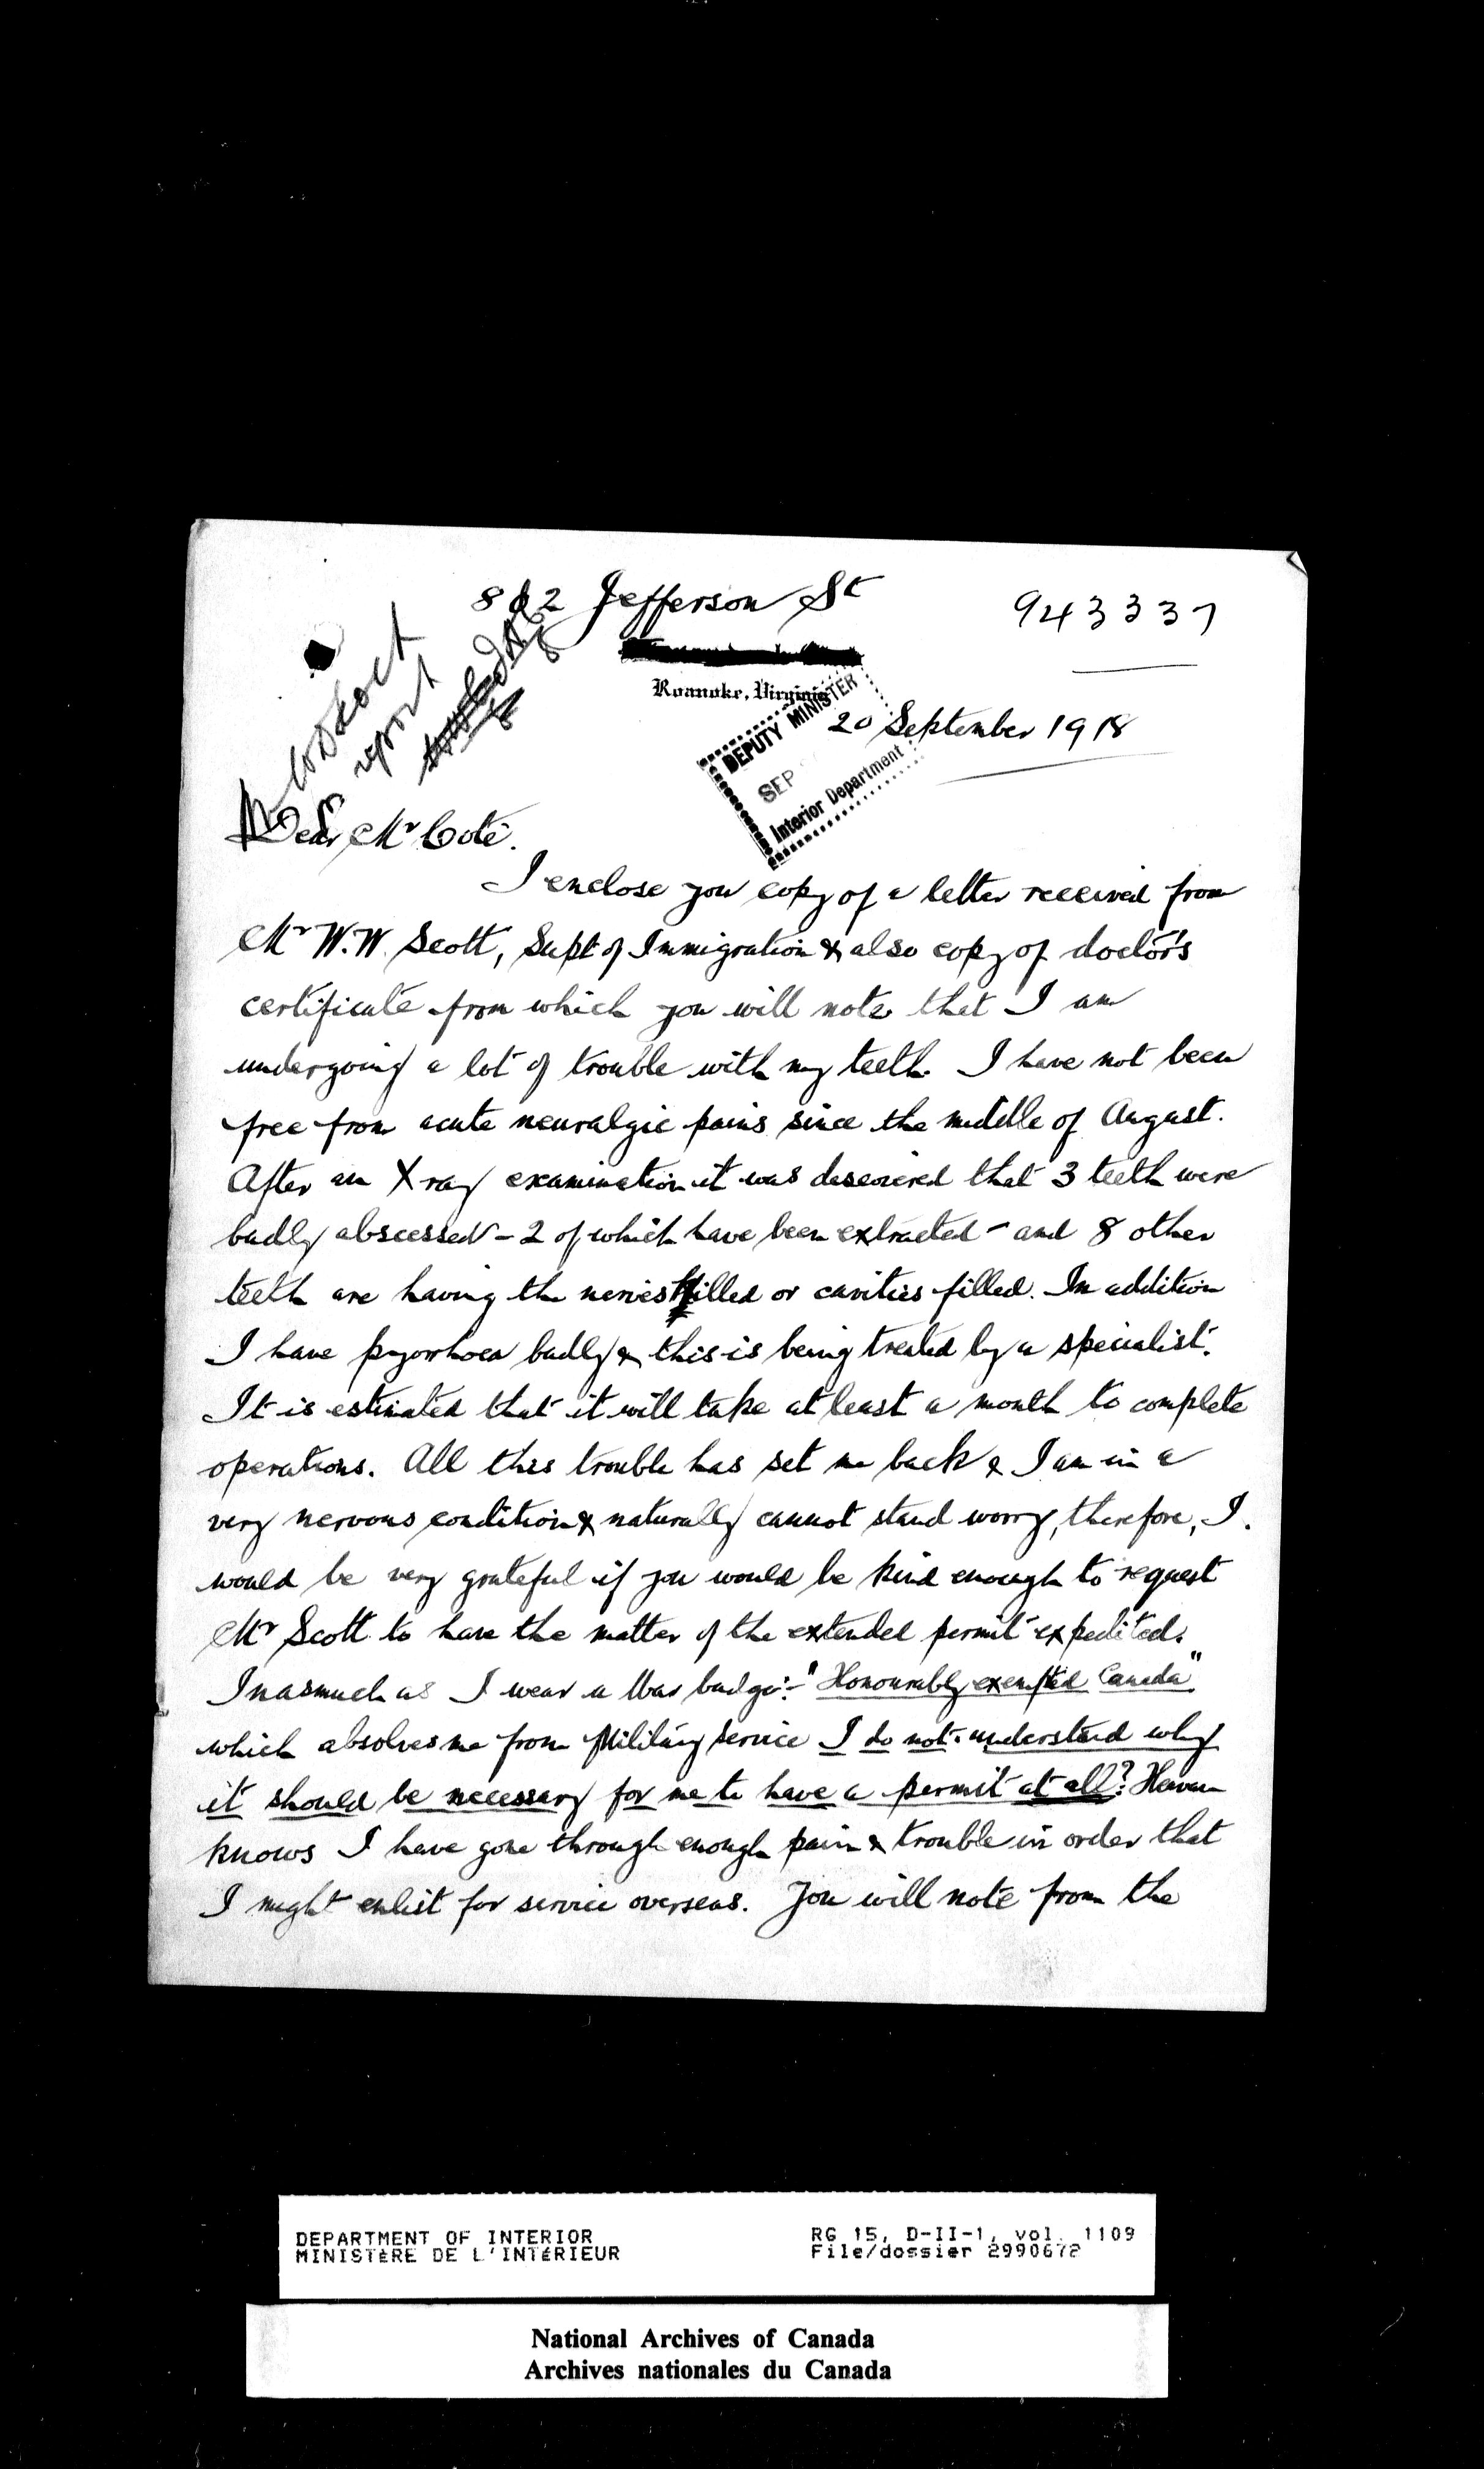 802 Jefferson St
943337
Roanoke, Virginia
20 September 1918
DEPUTY MINISTER
SEP
Interior Department
lookout
report
Dear Mr Coté.
I enclose you copy of a letter received from
Mr W.W. Scott, Supt of Immigration & also copy of doctor's
certificate from which you will note that I am
undergoing a lot of trouble with my teeth. I have not been
free from acute neuralgic pains since the middle of August.
After an X ray examination it was discovered that 3 teeth were
badly abscessed - 2 of which have been extracted - and 8 other
teeth are having the nerves killed or cavities filled. In addition
I have pyorrhoea badly & this is being treated by a specialist.
It is estimated that it will take at least a month to complete
operations. All this trouble has set me back & I am in a
very nervous condition & naturally cannot stand worry, therefore, I
would be very grateful if you would be kind enough to request
Mr Scott to have the matter of the extended permit expedited.
Inasmuch as I wear a War badge:- "Honourably exempted Canada"
which absolves me from Military service I do not understand why
it should be necessary for me to have a permit at all? Heaven
knows I have gone through enough pain & trouble in order that
I might enlist for service overseas. You will note from the
DEPARTMENT OF INTERIOR
MINISTÈRE DE L'INTÉRIEUR
RG 15, D-II-1, vol. 1109
File/dossier 2990672
National Archives of Canada
Archives nationales du Canada